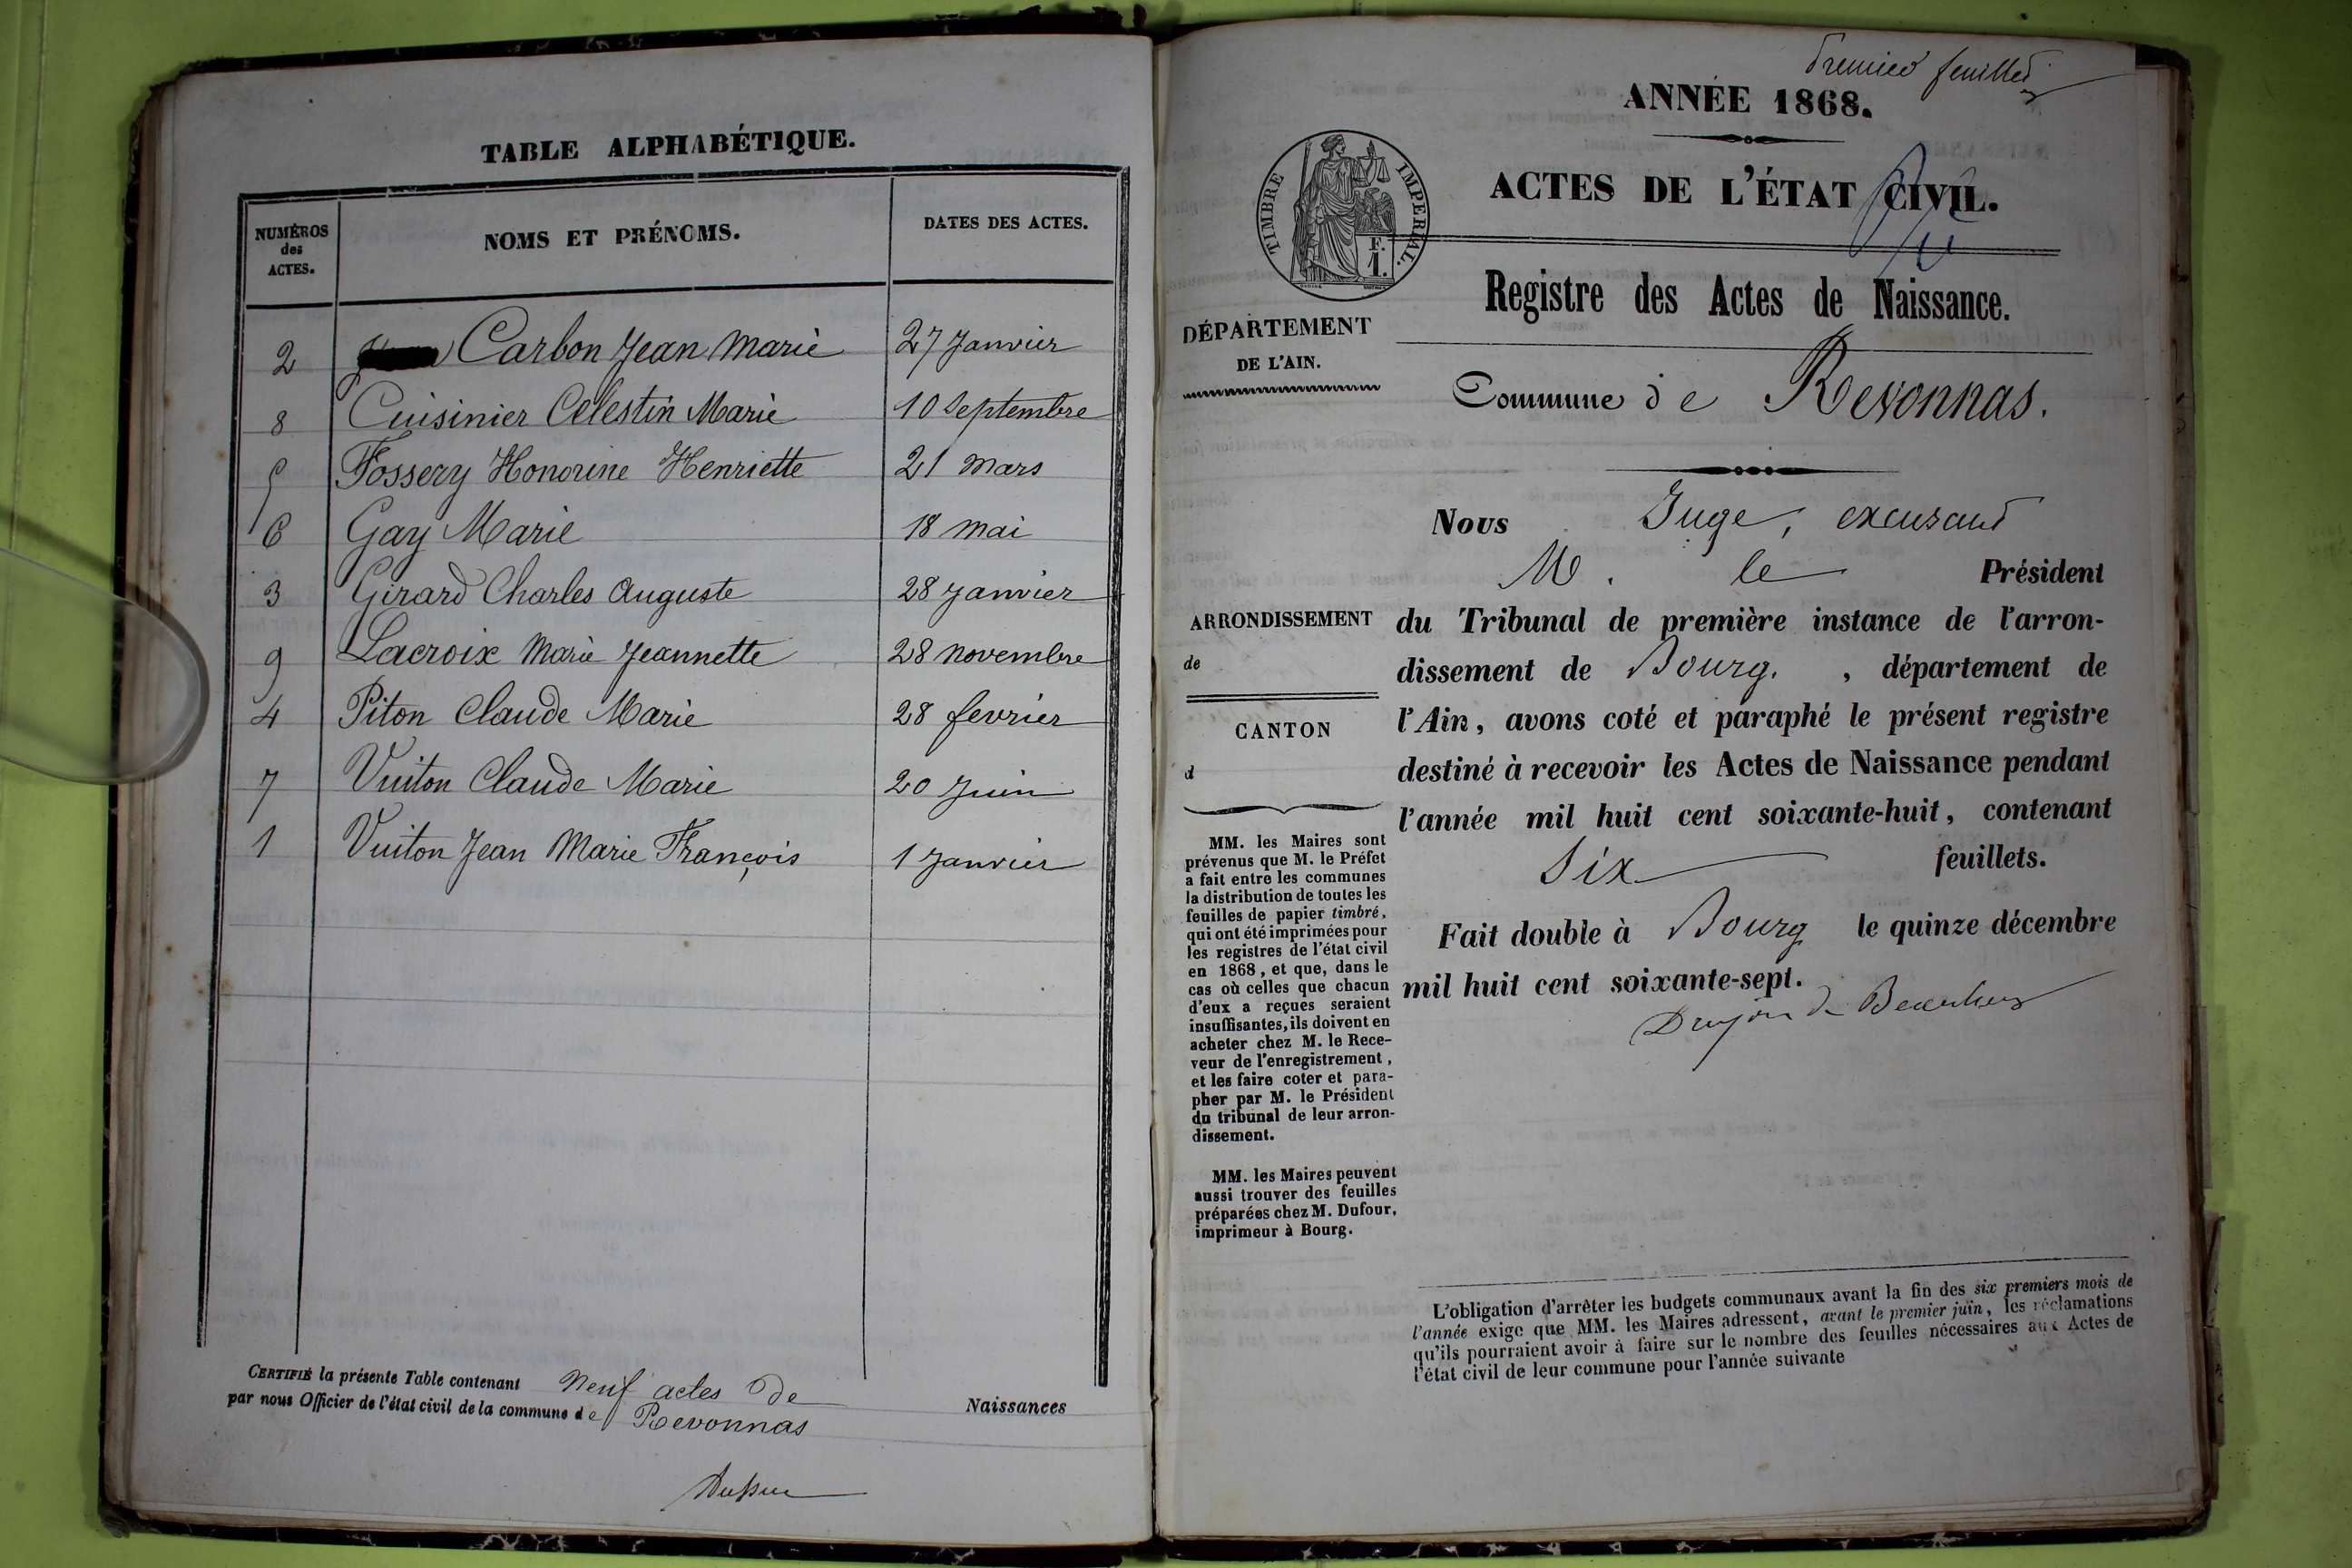 TABLE ALPHABÉTIQUE.
NUMÉROS des ACTES. NOMS ET PRÉNOMS. DATES DES ACTES.
2 Carbon Jean Marie 27 Janvier
8 Cuisinier Célestin Marie 10 Septembre
5 Fossery Honorine Henriette 21 Mars
6 Gay Marie 18 Mai
3 Girard Charles Auguste 28 Janvier
9 Lacroix Marie Jeannette 28 Novembre
4 Piton Claude Marie 28 fevrier
7 Vuiton Claude Marie 20 Juin
1 Vuiton Jean Marie François 1 Janvier
CERTIFIÉ la présente Table contenant Neuf actes de Naissances
par nous Officier de l'état civil de la commune de Revonnas
Premier feuillet
ANNÉE 1868.
TIMBRE IMPÉRIAL.
F.
1.
ACTES DE L'ÉTAT CIVIL.
Registre des Actes de Naissance.
DÉPARTEMENT
DE L'AIN.
Commune de Revonnas.
ARRONDISSEMENT
de
CANTON
d
MM. les Maires sont
prévenus que M. le Préfet
a fait entre les communes
la distribution de toutes les
feuilles de papier timbré,
qui ont été imprimées pour
les registres de l'état civil
en 1868, et que, dans le
cas où celles que chacun
d'eux a reçues seraient
insuffisantes, ils doivent en
acheter chez M. le Rece-
veur de l'enregistrement,
et les faire coter et para-
pher par M. le Président
du tribunal de leur arron-
dissement.
MM. les Maires peuvent
aussi trouver des feuilles
préparées chez M. Dufour,
imprimeur à Bourg.
Nous Juge, excusant
M. le Président
du Tribunal de première instance de l'arron-
dissement de Bourg. , département de
l'Ain, avons coté et paraphé le présent registre
destiné à recevoir les Actes de Naissance pendant
l'année mil huit cent soixante-huit, contenant
Six feuillets.
Fait double à Bourg le quinze décembre
mil huit cent soixante-sept.
L'obligation d'arrêter les budgets communaux avant la fin des six premiers mois de
l'année exige que MM. les Maires adressent, avant le premier juin, les réclamations
qu'ils pourraient avoir à faire sur le nombre des feuilles nécessaires aux Actes de
l'état civil de leur commune pour l'année suivante